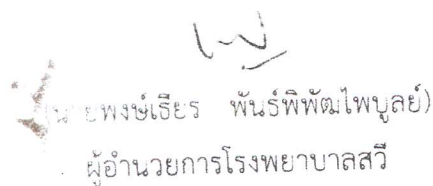 (นายพงษ์เธียร พันธ์พิพัฒไพบูลย์)
ผู้อำนวยการโรงพยาบาลสวี